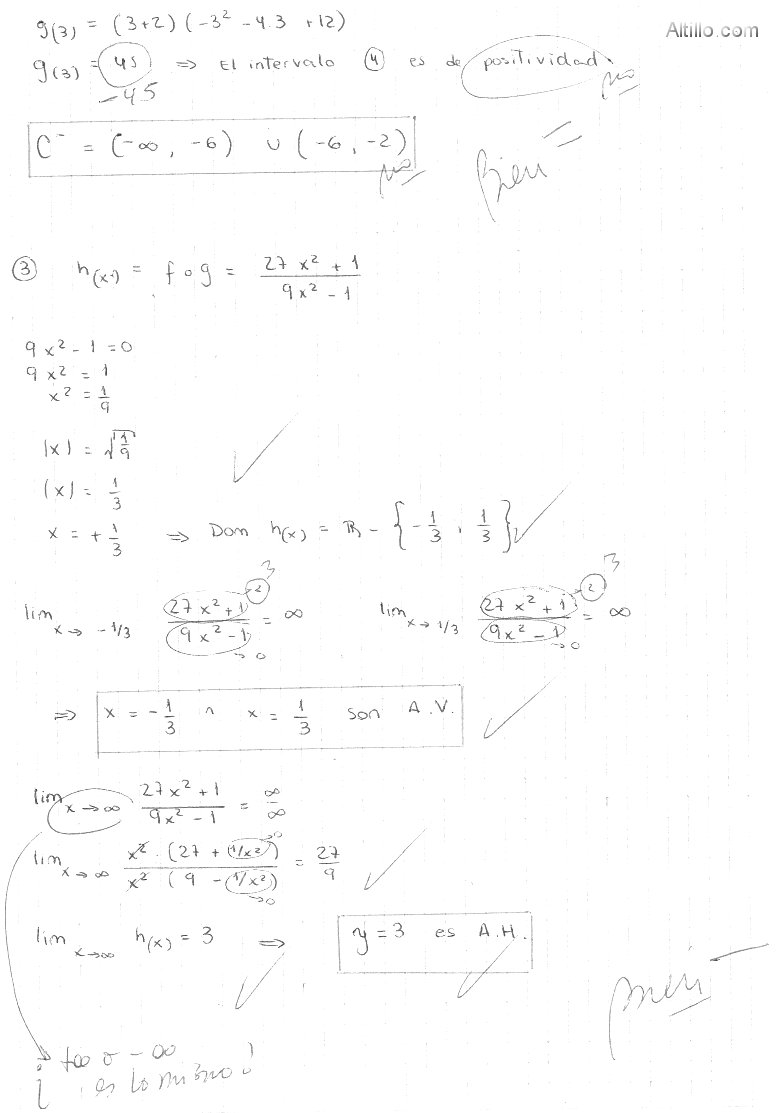 Altillo.com
g(3) = (3+2) (-3² - 4.3 +12)
g(3) = 45 ⇒ El intervalo ④ es de positividad. no
-45
C⁻ = (-∞, -6) ∪ (-6, -2) no
Bien
③ h(x) = f∘g = (27x² + 1)/(9x² - 1)
9x² - 1 = 0
9x² = 1
x² = 1/9
|x| = √(1/9)
(x) = 1/3
x = ± 1/3 ⇒ Dom h(x) = ℝ - {-1/3, 1/3}
lim x→ -1/3 (27x²+1)/(9x²-1) = ∞ lim x→ 1/3 (27x²+1)/(9x²-1) = ∞
→ 2 3 → 2 3
→ 0 → 0
⇒ x = -1/3 ∧ x = 1/3 son A.V.
lim x→∞ (27x²+1)/(9x²-1) = ∞/∞
lim x→∞ x² . (27 + 1/x²) / x² (9 - 1/x²) = 27/9
→0
→0
lim x→∞ h(x) = 3 ⇒ y = 3 es A.H.
¿ +∞ o -∞
es lo mismo?